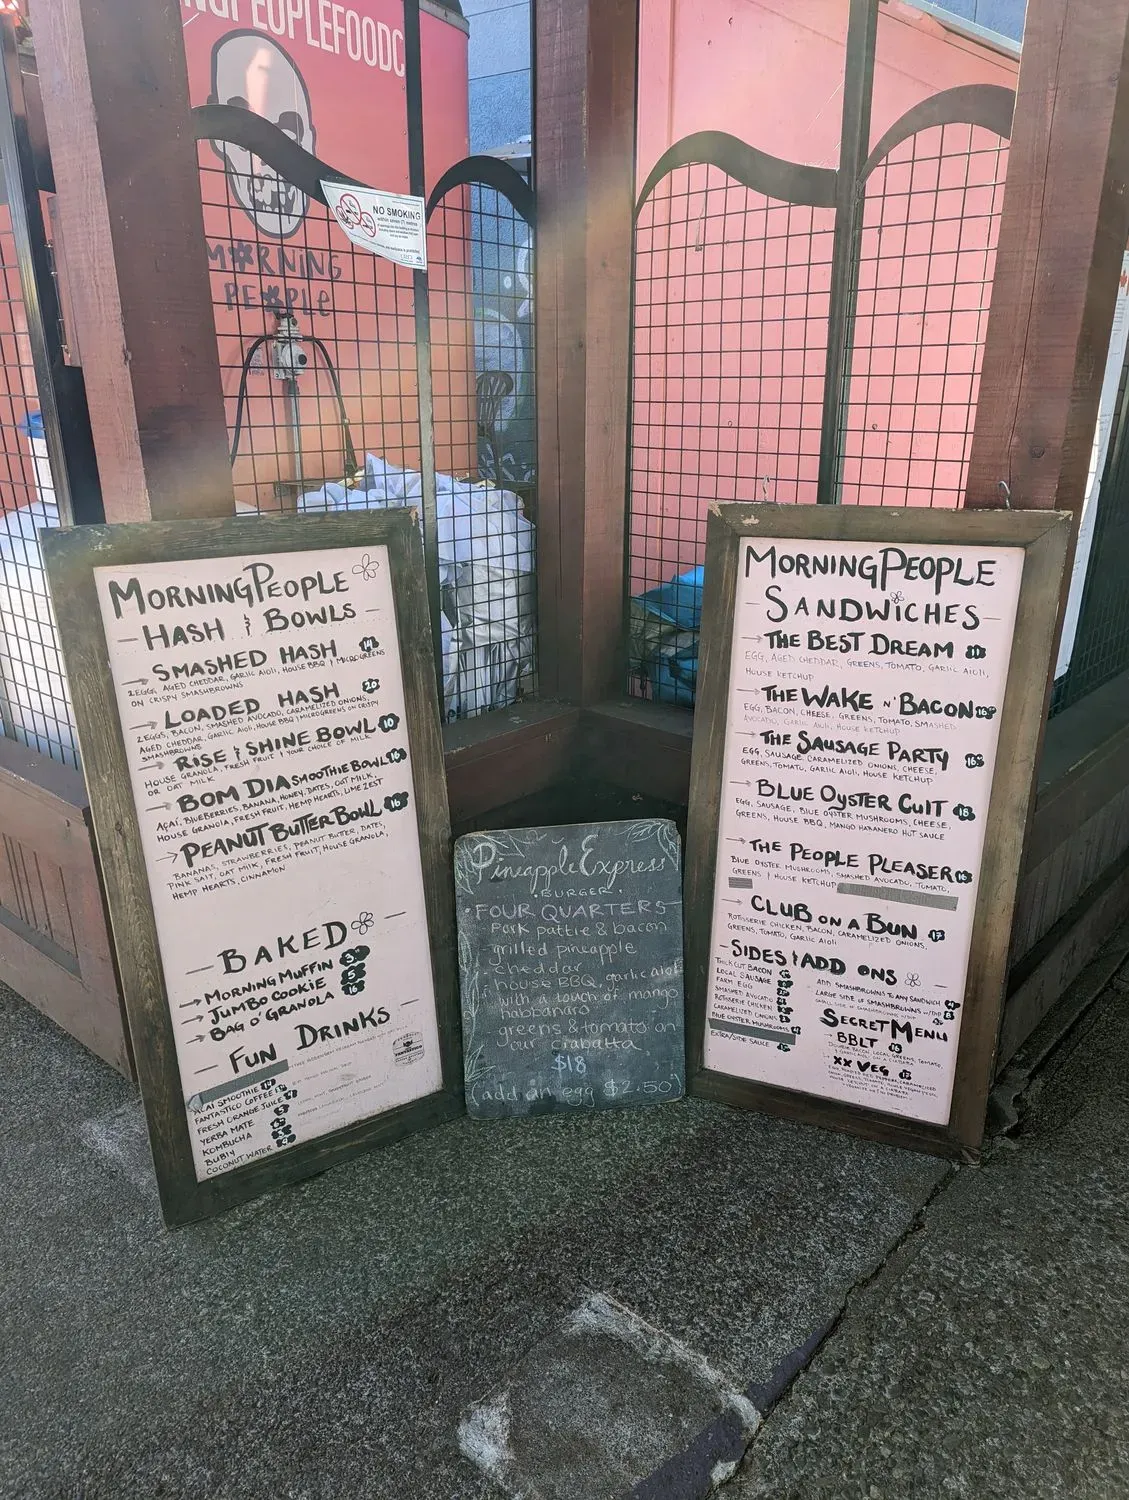 NGPEOPLEFOODC
NO SMOKING
MORNING
PEOPLE
MORNINGPEOPLE
HASH & BOWLS
SMASHED HASH 14
2 EGGS, AGED CHEDDAR, GARLIC AIOLI, HOUSE BBQ & MICROGREENS
ON CRISPY SMASHBROWNS
LOADED HASH 20
2 EGGS, BACON, SMASHED AVOCADO, CARAMELIZED ONIONS,
AGED CHEDDAR, GARLIC AIOLI, HOUSE BBQ & MICROGREENS ON CRISPY
SMASHBROWNS
RISE & SHINE BOWL 10
HOUSE GRANOLA, FRESH FRUIT & YOUR CHOICE OF MILK
OR OAT MILK
BOM DIA SMOOTHIE BOWL 16
AÇAÍ, BLUEBERRIES, BANANA, HONEY, DATES, OAT MILK,
HOUSE GRANOLA, FRESH FRUIT, HEMP HEARTS, LIME ZEST
PEANUT BUTTER BOWL 16
BANANAS, STRAWBERRIES, PEANUT BUTTER, DATES,
PINK SALT, OAT MILK, FRESH FRUIT, HOUSE GRANOLA,
HEMP HEARTS, CINNAMON
BAKED
MORNING MUFFIN
JUMBO COOKIE 5
BAG O' GRANOLA 16
FUN DRINKS
AÇAÍ SMOOTHIE
FANTASTICO COFFEE
FRESH ORANGE JUICE
YERBA MATE
KOMBUCHA
BUBLY
COCONUT WATER
Pineapple Express
BURGER
FOUR QUARTERS
pork pattie & bacon
grilled pineapple
cheddar
house BBQ, garlic aioli
with a touch of mango
habbanaro
greens & tomato on
our ciabatta
$18
(add an egg $2.50)
MORNINGPEOPLE
SANDWICHES
THE BEST DREAM
EGG, AGED CHEDDAR, GREENS, TOMATO, GARLIC AIOLI,
HOUSE KETCHUP
THE WAKE N' BACON
EGG, BACON, CHEESE, GREENS, TOMATO, SMASHED
AVOCADO, GARLIC AIOLI, HOUSE KETCHUP
THE SAUSAGE PARTY
EGG, SAUSAGE, CARAMELIZED ONIONS, CHEESE,
GREENS, TOMATO, GARLIC AIOLI, HOUSE KETCHUP
BLUE OYSTER CULT 18
EGG, SAUSAGE, BLUE OYSTER MUSHROOMS, CHEESE,
GREENS, HOUSE BBQ, MANGO HABANERO HOT SAUCE
THE PEOPLE PLEASER
BLUE OYSTER MUSHROOMS, SMASHED AVOCADO, TOMATO,
GREENS & HOUSE KETCHUP
CLUB ON A BUN 17
ROTISSERIE CHICKEN, BACON, CARAMELIZED ONIONS,
GREENS, TOMATO, GARLIC AIOLI
SIDES & ADD ONS
THICK CUT BACON
LOCAL SAUSAGE
FARM EGG
SMASHED AVOCADO
ROTISSERIE CHICKEN
CARAMELIZED ONIONS
BLUE OYSTER MUSHROOMS
EXTRA/SIDE SAUCE
ADD SMASHBROWNS TO ANY SANDWICH
LARGE SIDE OF SMASHBROWNS
SMALL SIDE OF SMASHBROWNS
SECRET MENU
BBLT
XX VEG